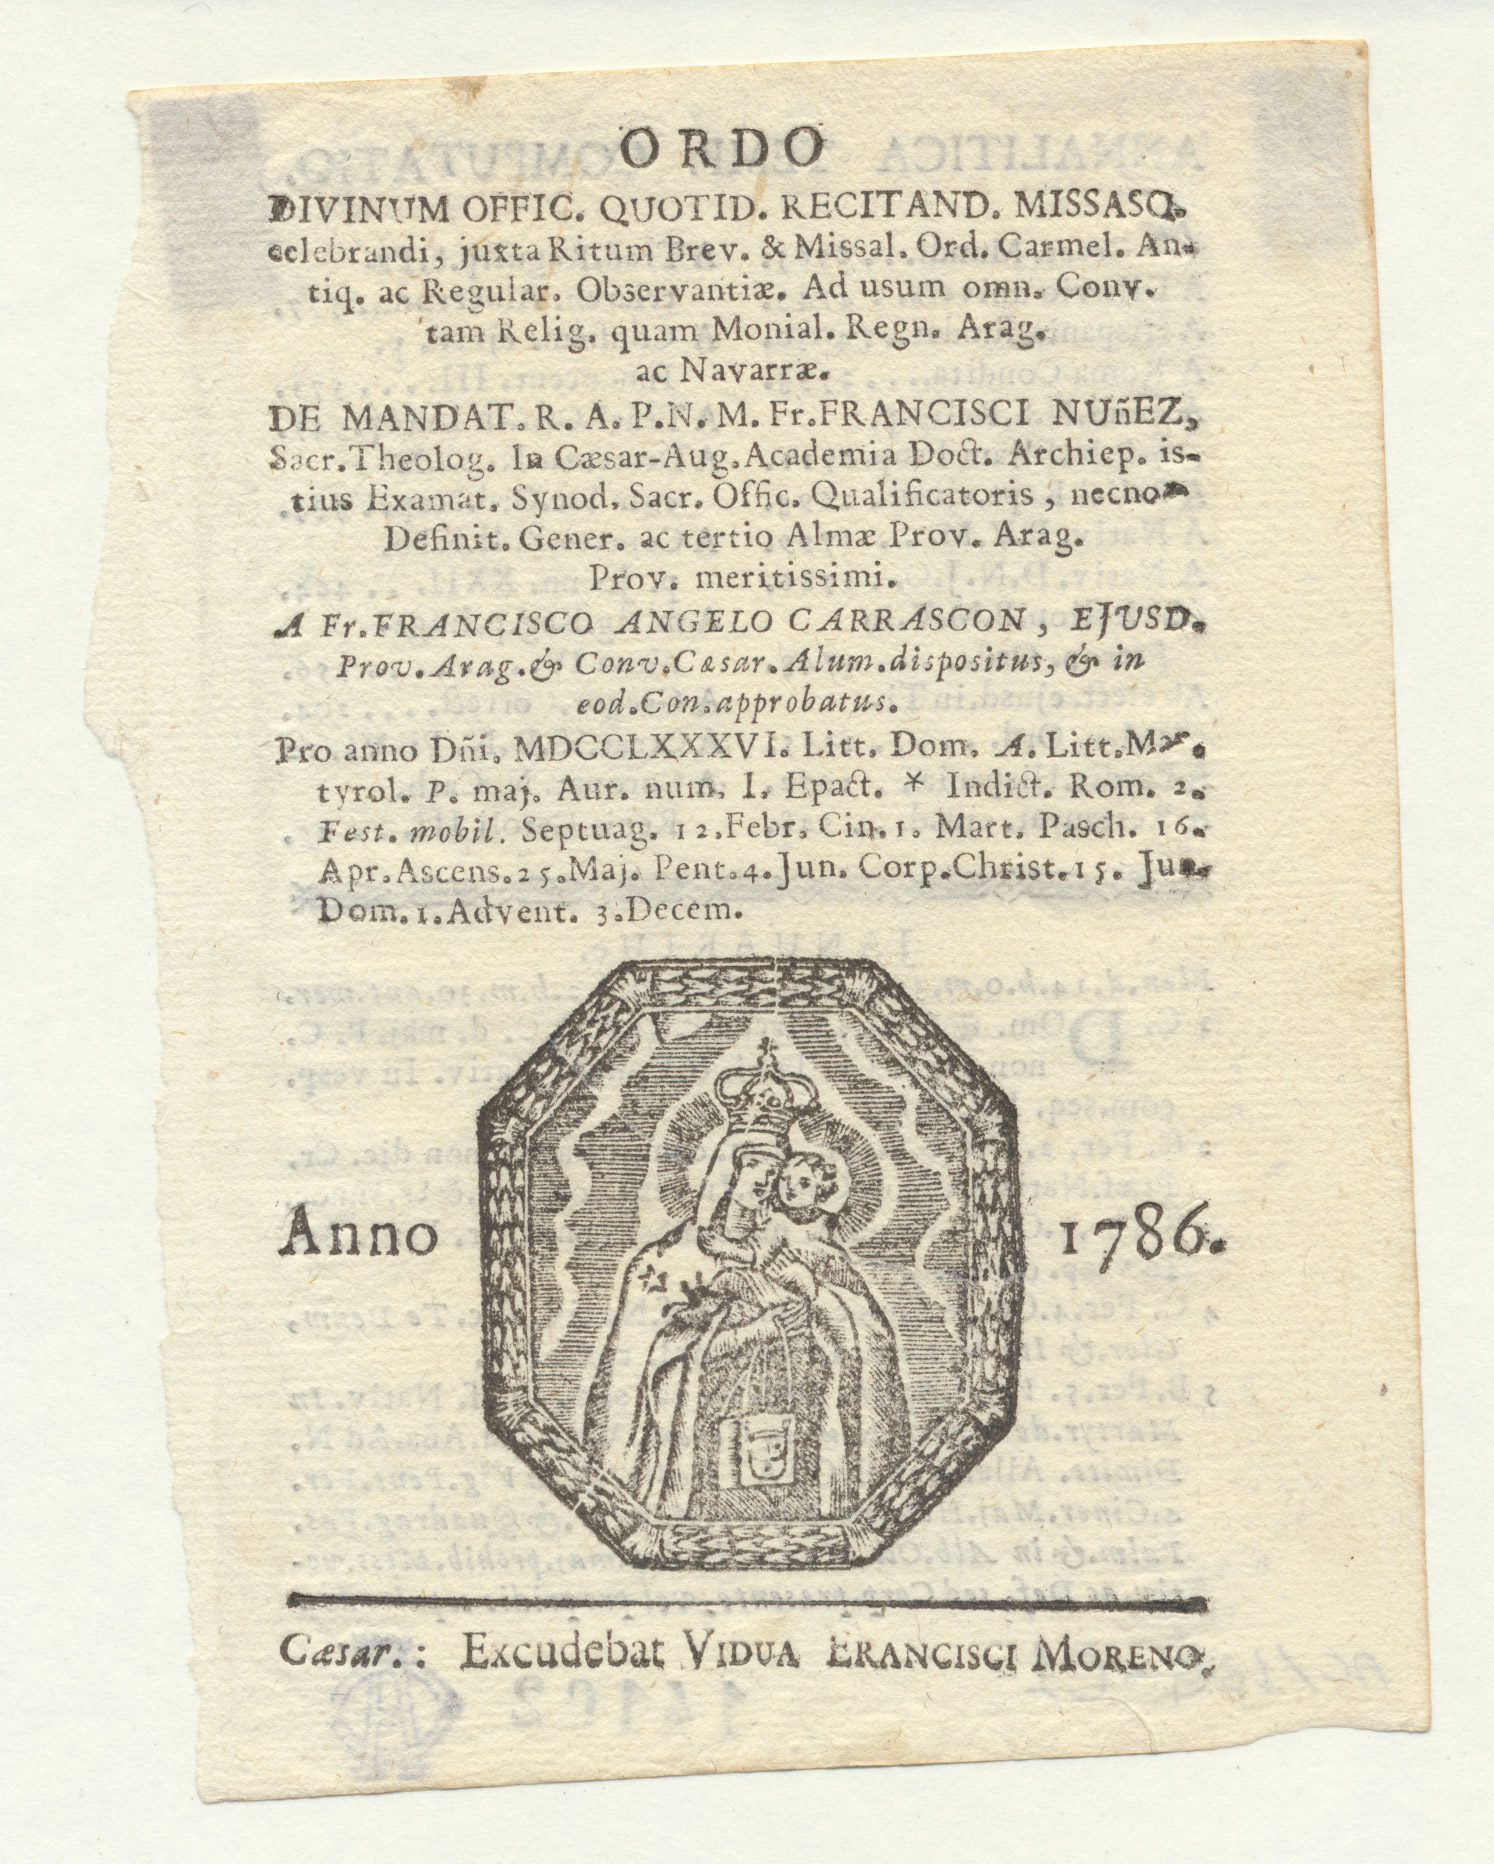 ORDO
DIVINUM OFFIC. QUOTID. RECITAND. MISSASQ.
celebrandi, juxta Ritum Brev. & Missal. Ord. Carmel. An-
tiq. ac Regular. Observantiæ. Ad usum omn. Conv.
tam Relig. quam Monial. Regn. Arag.
ac Navarræ.
DE MANDAT. R. A. P. N. M. Fr. FRANCISCI NUñEZ,
Sacr. Theolog. In Cæsar-Aug. Academia Doct. Archiep. is-
tius Examat. Synod. Sacr. Offic. Qualificatoris, necnon
Definit. Gener. ac tertio Almæ Prov. Arag.
Prov. meritissimi.
A Fr. FRANCISCO ANGELO CARRASCON, EJUSD.
Prov. Arag. & Conv. Cæsar. Alum. dispositus, & in
eod. Con. approbatus.
Pro anno Dñi. MDCCLXXXVI. Litt. Dom. A. Litt. Mar-
tyrol. P. maj. Aur. num. I. Epact. * Indict. Rom. 2.
Fest. mobil. Septuag. 12. Febr. Cin. 1. Mart. Pasch. 16.
Apr. Ascens. 25. Maj. Pent. 4. Jun. Corp. Christ. 15. Jun.
Dom. 1. Advent. 3. Decem.
Anno 1786.
Cæsar.: Excudebat VIDUA FRANCISCI MORENO.